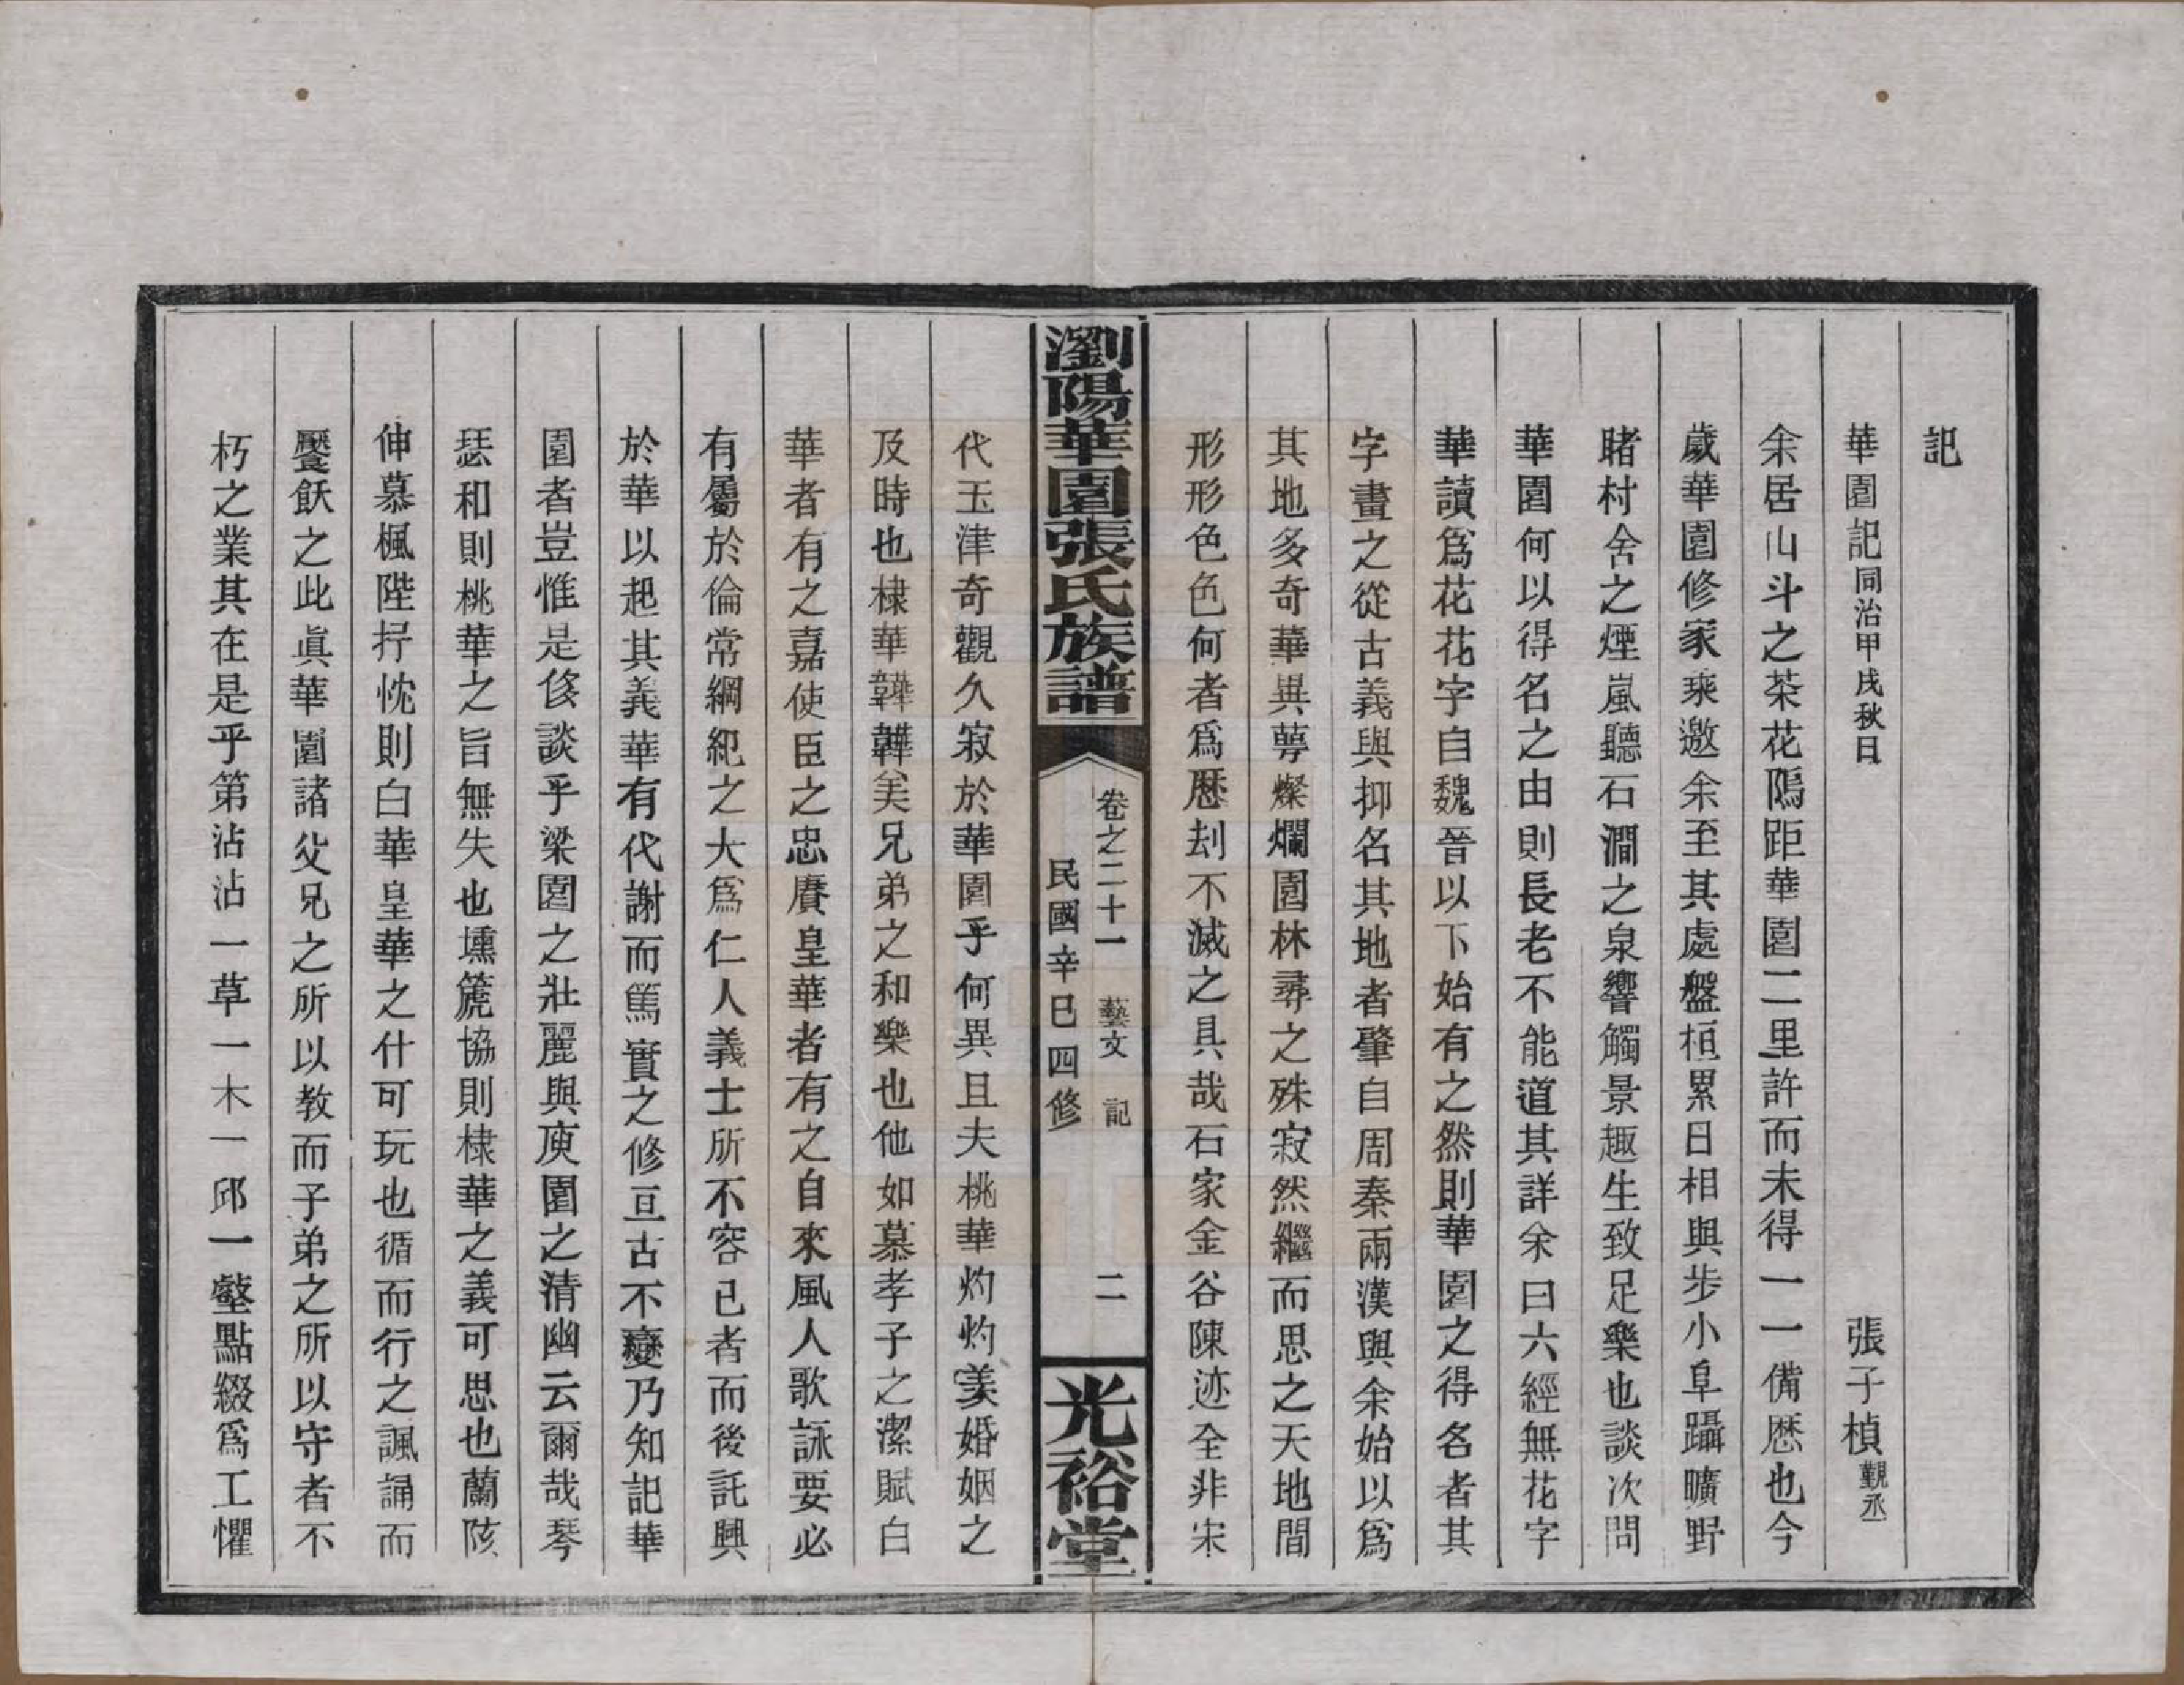 記
華園記同治甲戌秋日　張子楨覲丞
余居山斗之茶花隝距華園二里許而未得一一備歷也今
歲華園修家乘邀余至其處盤桓累日相與步小阜躡曠野
睹村舍之煙嵐聽石澗之泉響觸景趣生致足樂也談次問
華園何以得名之由則長老不能道其詳余曰六經無花字
華讀爲花花字自魏晉以下始有之然則華園之得名者其
字畫之從古義與抑名其地者肇自周秦兩漢與余始以爲
其地多奇華異蕚燦爛園林尋之殊寂然繼而思之天地間
形形色色何者爲歷刦不滅之具哉石家金谷陳迹全非宋
瀏陽華園張氏族譜
卷之二十一　藝文　記　二
民國辛巳四修
光裕堂
代玉津奇觀久寂於華園乎何異且夫桃華灼灼美婚姻之
及時也棣華韡韡美兄弟之和樂也他如慕孝子之潔賦白
華者有之嘉使臣之忠賡皇華者有之自來風人歌詠要必
有屬於倫常綱紀之大爲仁人義士所不容已者而後託興
於華以起其義華有代謝而篤實之修亘古不變乃知記華
園者豈惟是侈談乎梁園之壯麗與庾園之清幽云爾哉琴
瑟和則桃華之旨無失也壎篪協則棣華之義可思也蘭陔
伸慕楓陛抒忱則白華皇華之什可玩也循而行之諷誦而
饜飫之此眞華園諸父兄之所以教而子弟之所以守者不
朽之業其在是乎第沾沾一草一木一邱一壑點綴爲工懼